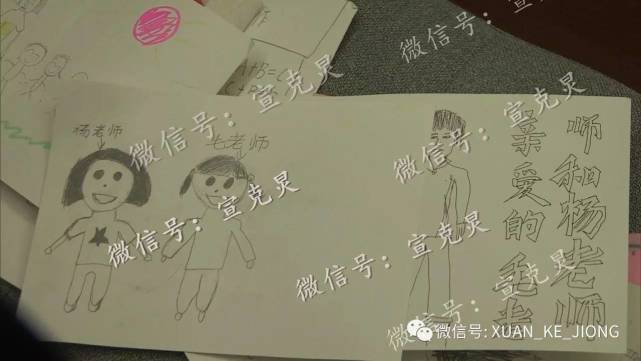 微信号：宣克炅
A+B=C
微信号：宣克炅
微信号：宣克炅
杨老师
毛老师
亲爱的毛老
师和杨老师
微信号：宣克炅
微信号：宣克炅
微信号：宣克炅
微信号: XUAN_KE_JIONG